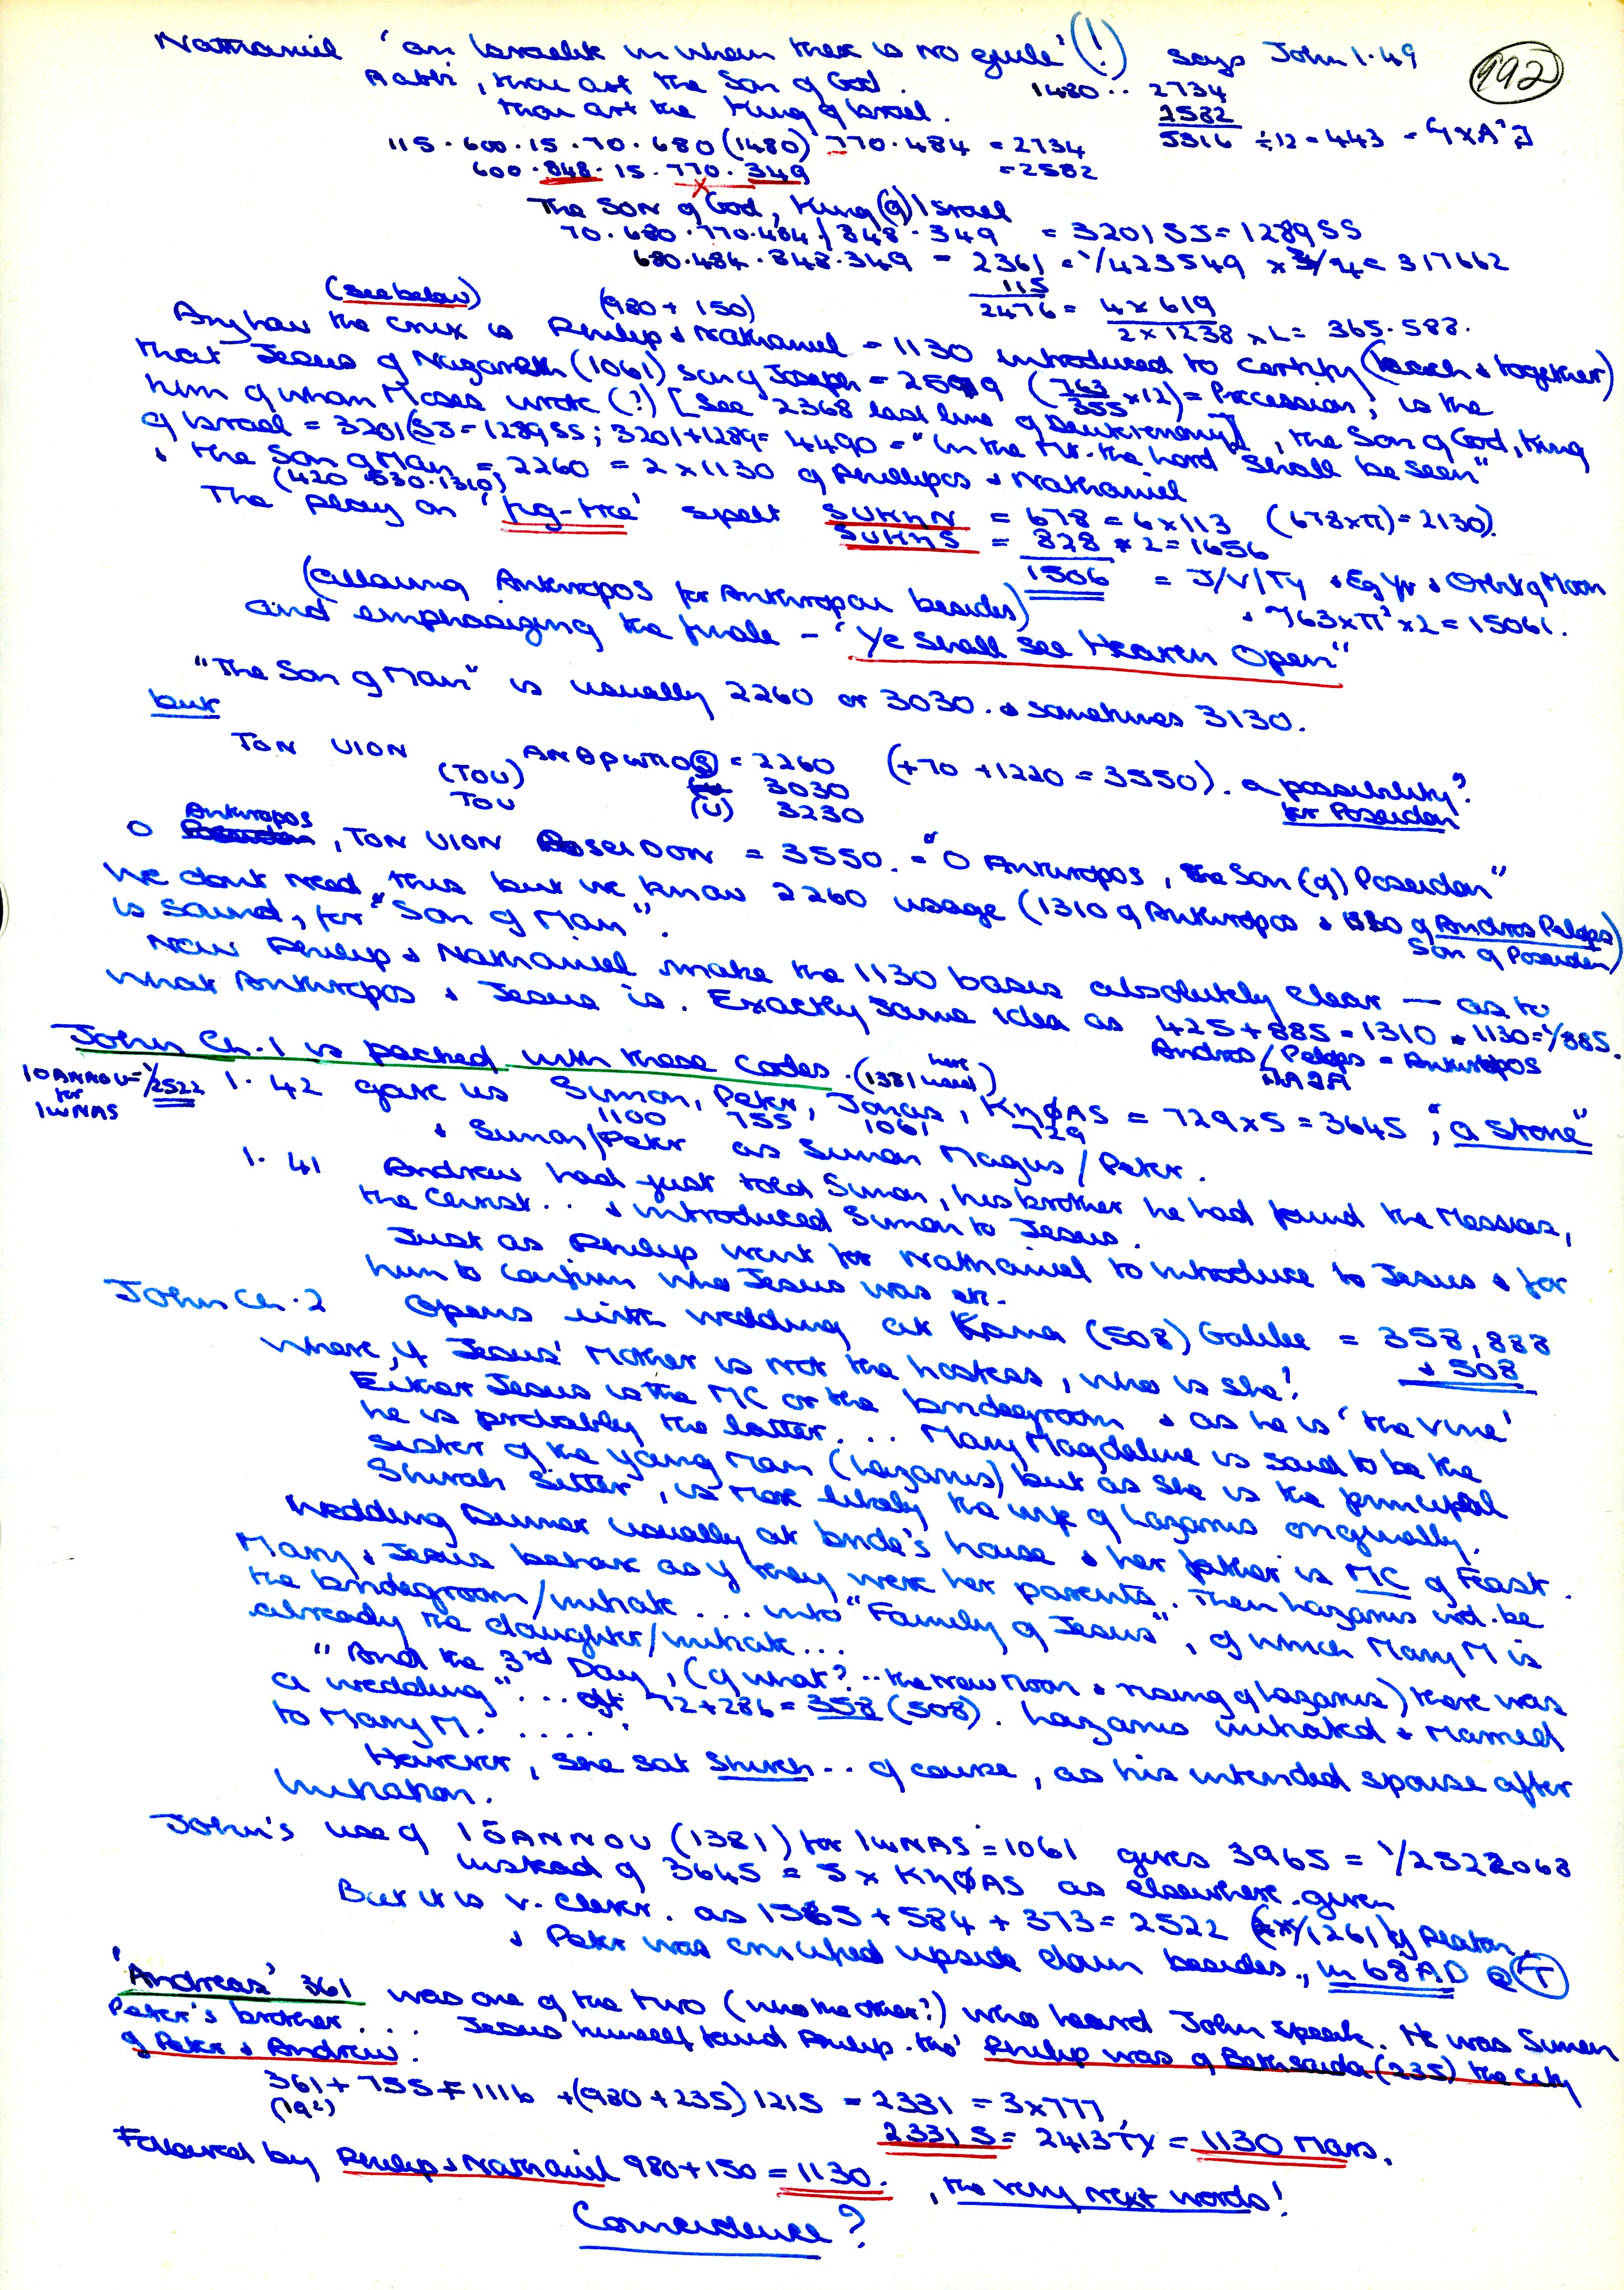 Nathaniel 'an Israelite in whom there is no guile' (!) says John 1.49
192
Rabbi, thou art the Son of God. 1480 .. 2734
thou art the King of Israel. 2582
115.600.15.70.680 (1480) 770.484 = 2734 5316 ÷12 = 443
600.848.15.770.349 = 2582
The SON of God, King (of) Israel
70.680.770.484 / 848.349 = 3201 SJ = 1289 SS
680.484.848.349 = 2361 = 1/423549 × 3/4 = 317662
115
2476 = 4 × 619
2 × 1238 × L = 365.588.
(see below) (980 + 150)
Anyhow the crux is Philip & Nathaniel = 1130 introduced to certify (each & together)
that Jesus of Nazareth (1061) son of Joseph = 2599 (763/355 × 12) = Precession; is the
him of whom Moses wrote (?) [See 2368 last line of Deuteronomy], the Son of God, King
of Israel = 3201 (SJ = 1289 SS; 3201 + 1289 = 4490 = "In the Mt. the Lord shall be seen"
& the Son of Man = 2260 = 2 × 1130 of Phillipos & Nathaniel
(420 530.1310)
The play on 'fig-tree' spelt SUKHN = 678 = 6 × 113 (678 × π) = 2130).
SUKHS = 828 × 2 = 1656
1506 = J/V/Ty & Eg Yr & Orbit of Moon
(allowing Anthropos for Anthropou besides) & 763 × π² × 2 = 15061.
and emphasizing the finale - "Ye shall see Heaven Open"
"The Son of Man" is usually 2260 or 3030. & sometimes 3130.
but
TON UION ANθPωΠO(S) = 2260 (+70 +1220 = 3550). a possibility?
(TOU) 3030 for Poseidon
TOU (U) 3230
Anthropos
O , TON UION POSEIDON = 3550. = "O Anthropos, the Son (of) Poseidon"
We dont need this but we know 2260 usage (1310 of Anthropos & 1310 of Andros Pelops)
is sound, for "Son of Man". Son of Poseidon)
Now Philip & Nathaniel make the 1130 basis absolutely clear — as to
what Anthropos & Jesus is. Exactly same idea as 425 + 885 = 1310 & 1130 = 1/885.
Andros / Pelops = Anthropos
John Ch.1 is packed with these Codes. (1381 here)
IOANNOU = 1/2522 1.42 gave us Simon, Peter, Jonas, KηφAS = 729 × 5 = 3645, "a stone"
for 1100 755 1061 729
IωNAS & Simon/Peter as Simon Magus / Peter.
1.41 Andrew had just told Simon, his brother he had found the Messias,
the Christ... & introduced Simon to Jesus.
Just as Philip went for Nathaniel to introduce to Jesus & for
him to confirm who Jesus was etc.
John Ch.2 Opens with wedding at Kana (508) Galilee = 358, 888
& 508
where, if Jesus' Mother is not the hostess, who is she?
Either Jesus is the MC or the bridegroom & as he is 'the vine'
he is probably the latter... Mary Magdalene is said to be the
sister of the young man (Lazarus) but as she is the principal
Shivah Sitter, is more likely the wife of Lazarus originally.
Wedding Dinner usually at bride's house & her father is MC of Feast.
Mary & Jesus behave as if they were her parents. Then Lazarus wd. be
the bridegroom/initiate... into "Family of Jesus", of which Mary M is
already the daughter/initiate...
"And the 3rd Day, (of what?.. the New Moon & rising of Lazarus) there was
a wedding"... 72 + 286 = 358 (508). Lazarus initiated & married
to Mary M. . . . . .
However, she sat Shiveh .. of course, as his intended spouse after
initiation.
John's use of IōANNOU (1381) for IωNAS = 1061 gives 3965 = 1/2522068
instead of 3645 = 5 × KηφAS as elsewhere given
But it is v. clever. as 1565 + 584 + 373 = 2522 (1261) of Platon.
& Peter was crucified upside down besides, in 68 AD @ (T)
'Andreas' 361 was one of the two (who the other?) who heard John speak. He was Simon
Peter's brother... Jesus himself found Philip. tho' Philip was of Bethsaida (235) the city
of Peter & Andrew.
361 + 755 = 1116 + (980 + 235) 1215 = 2331 = 3 × 777,
(19²)
2331 S = 2413 Ty = 1130 Mars.
Followed by Philip & Nathaniel 980 + 150 = 1130. , the very next words!
Coincidence?